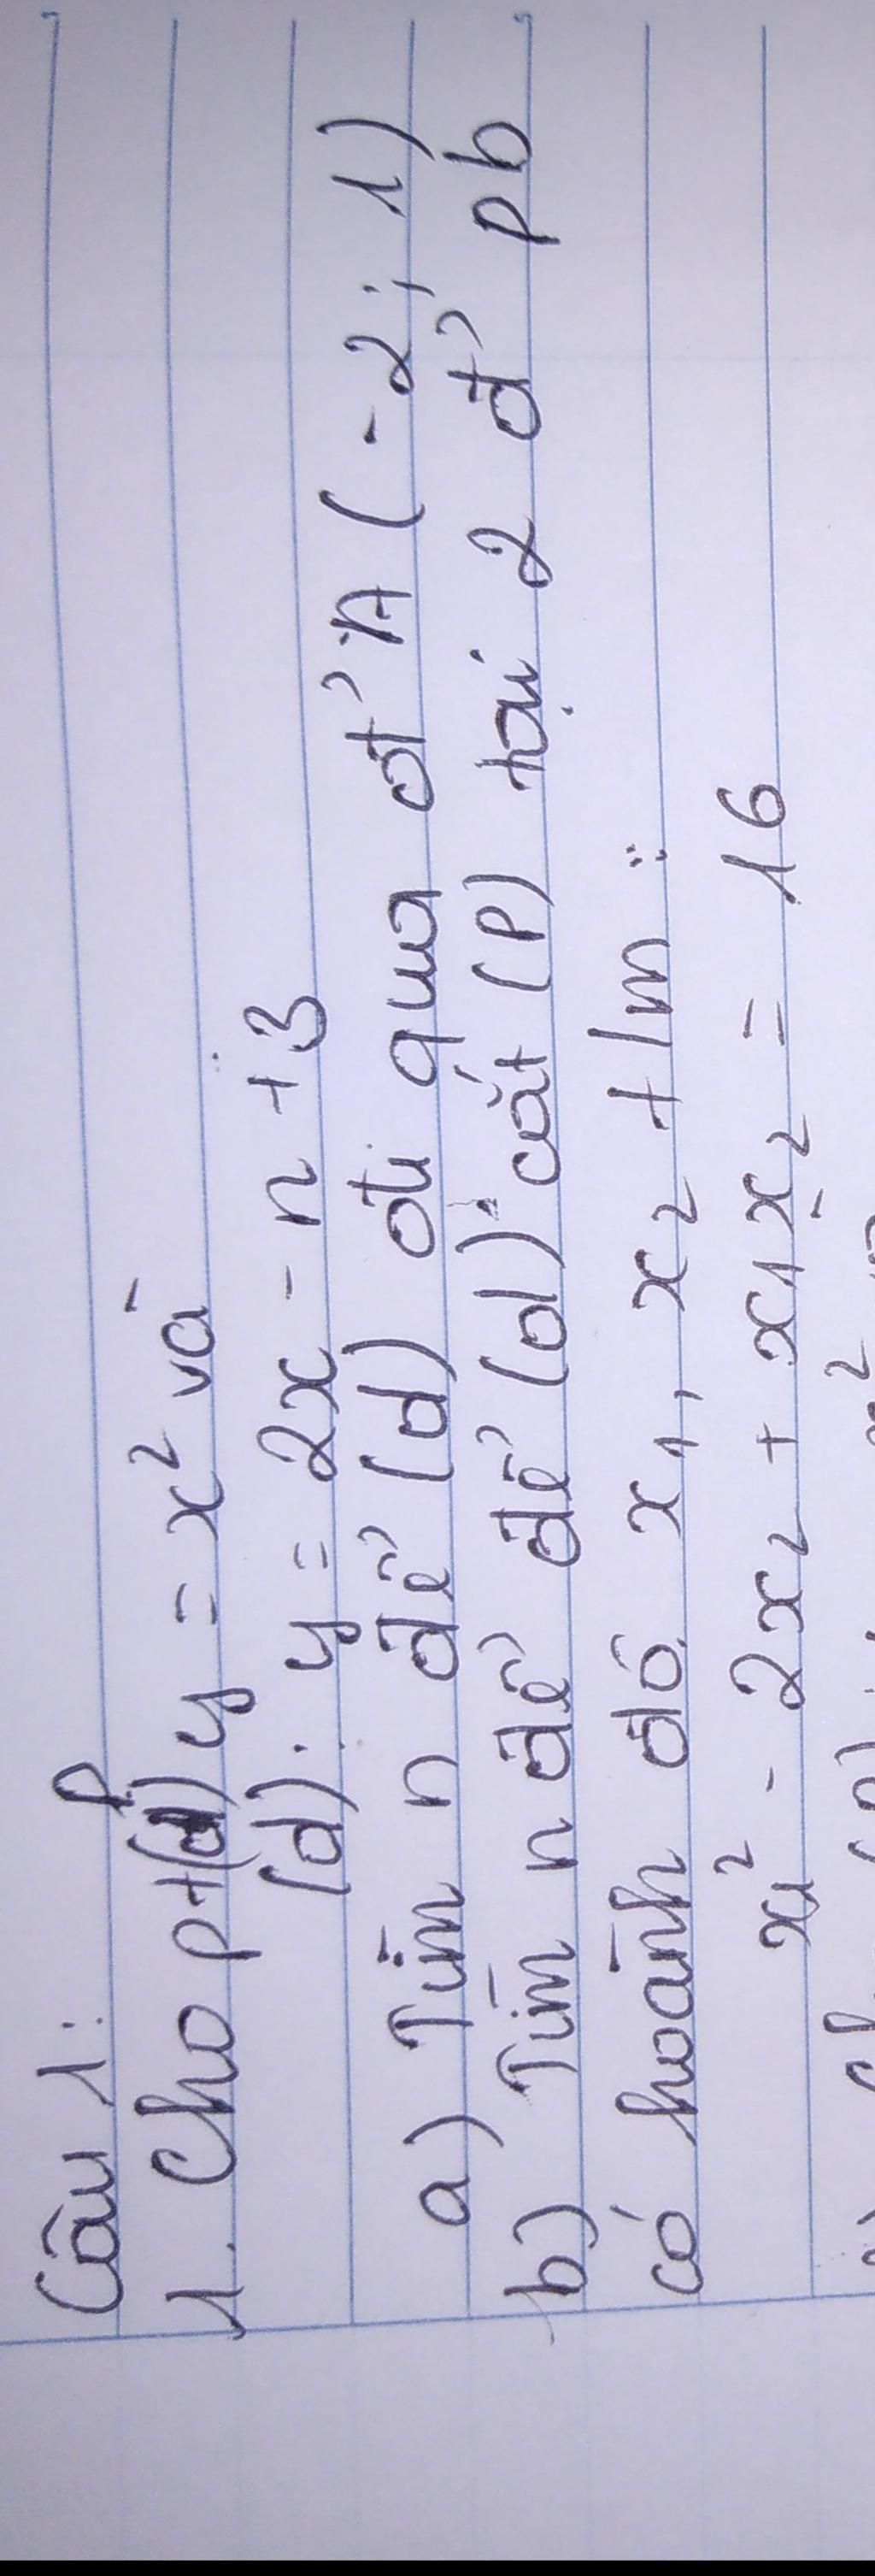 Câu 1:
1. Cho pt (P) y = x² và
(d): y = 2x - n + 3
a) Tìm n để (d) đi qua đ' A (-2; 1)
b) Tìm n để để (d) cắt (P) tại 2 đ' pb
có hoành độ x₁, x₂ t/m :
x₁² - 2x₂ + x₁x₂ = 16